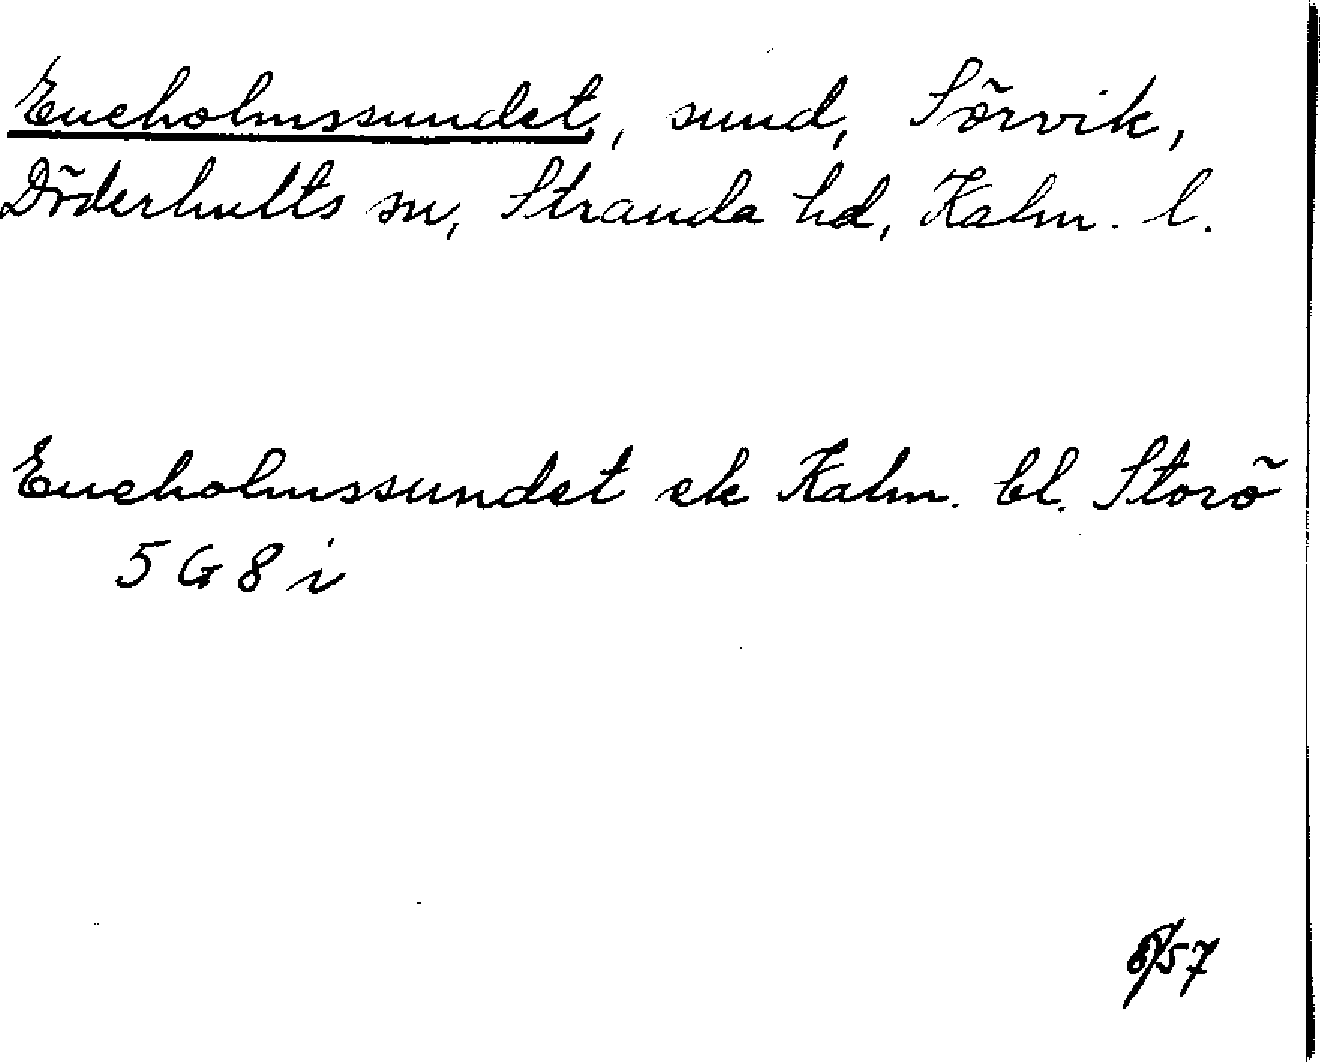 Eneholmssundet, sund, Sörvik,
Döderhults sn, Stranda hd, Kalm. l.
Eneholmssundet ek Kalm. bl. Storö
5 G 8 i